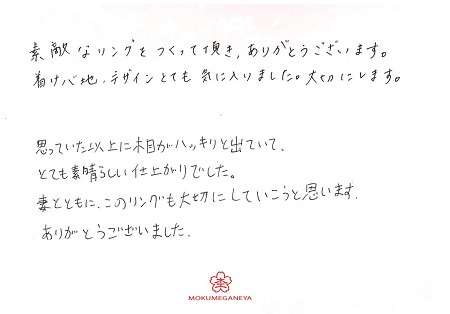 素敵なリングをつくって頂き、ありがとうございます。
着け心地、デザインとても気に入りました。大切にします。
思っていた以上に木目がハッキリと出ていて、
とても素晴らしい仕上がりでした。
妻とともに、このリングも大切にしていこうと思います。
ありがとうございました。
MOKUMEGANEYA